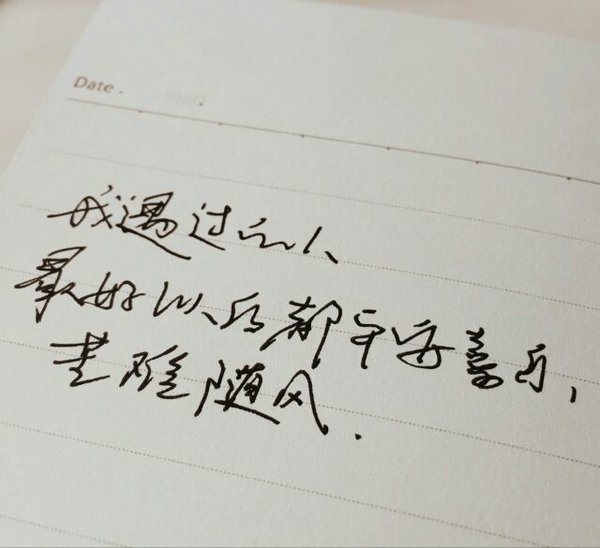 Date.
我遇过的人
最好以后都平安喜乐,
难随风.